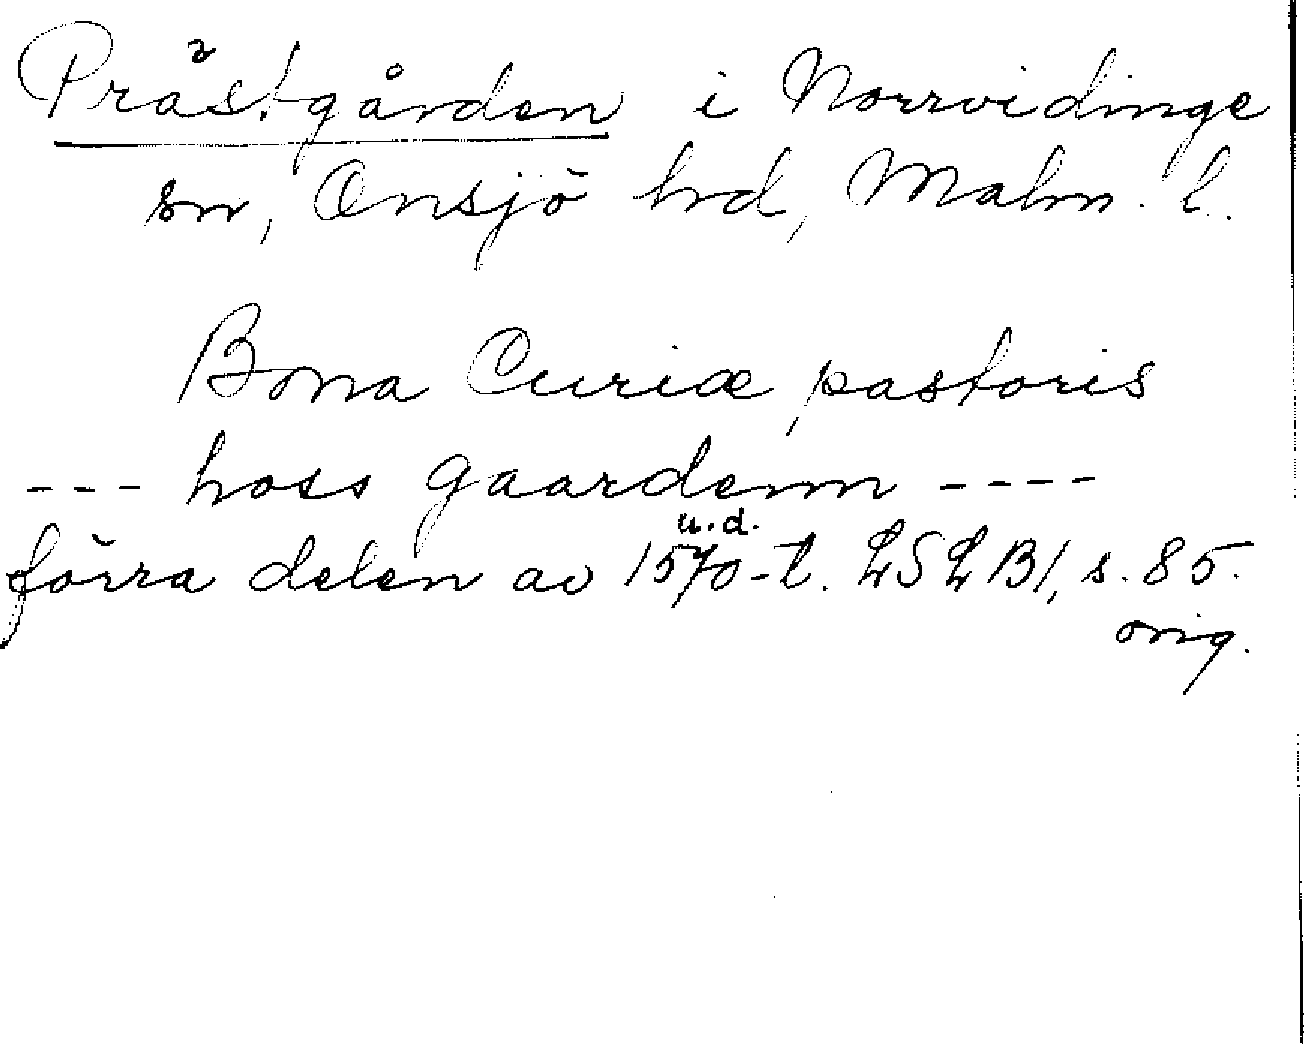 Prästgården i Norrvidinge
sn, Onsjö hd, Malm. l.
Bona Curiæ pastoris
--- hoss gaardenn ----
u.d.
förra delen av 1570-t. LSLB1, s. 85.
orig.